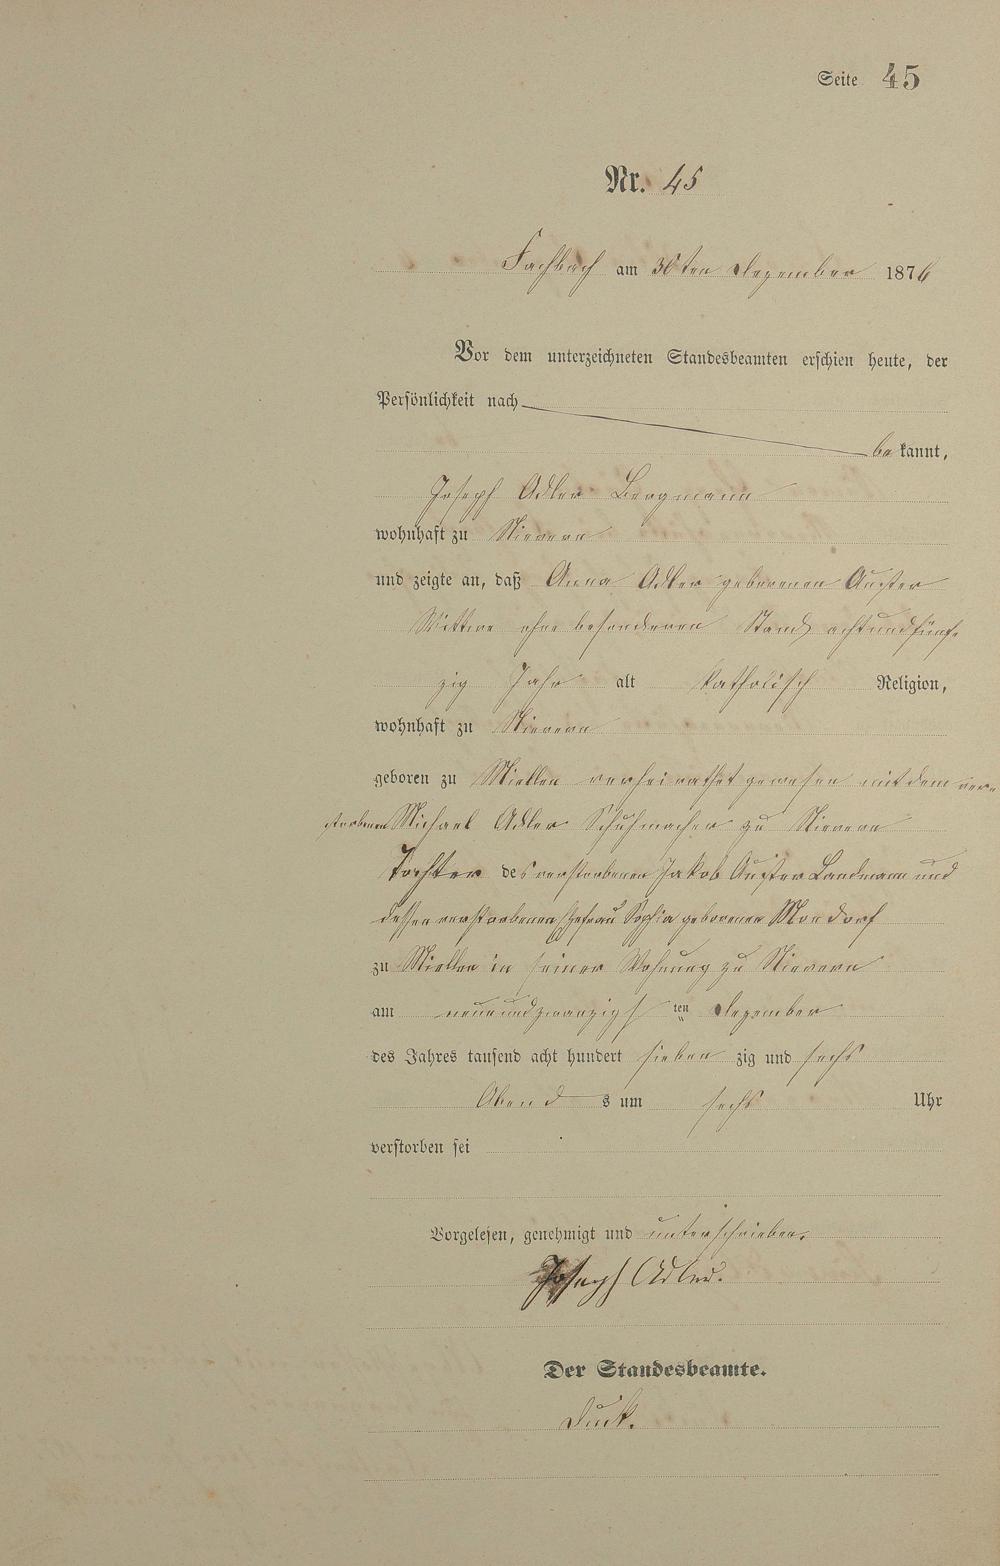 Seite 45
Nr. 45
Fachbach am 30ten Dezember 1876
Vor dem unterzeichneten Standesbeamten erschien heute, der
Persönlichkeit nach
be kannt,
Joseph Adler Bergmann
wohnhaft zu Nievern
und zeigte an, daß Anna Adler geborenen Auster
Wittwe ohne besonderen Stand achtundfünf-
zig Jahr alt katholisch Religion,
wohnhaft zu Nievern
geboren zu Miellen verheirathet gewesen mit dem ver-
storbenen Michael Adler Schuhmacher zu Nievern
Tochter des verstorbenen Jakob Auster Landmann und
dessen verstorbenen Ehefrau Sophia geborenen Mondorf
zu Miellen in seiner Wohnung zu Nievern
am neunundzwanzigsten Dezember
des Jahres tausend acht hundert sieben zig und sechs
Abend s um sechs Uhr
verstorben sei
Vorgelesen, genehmigt und unterschrieben.
Joseph Adler.
Der Standesbeamte.